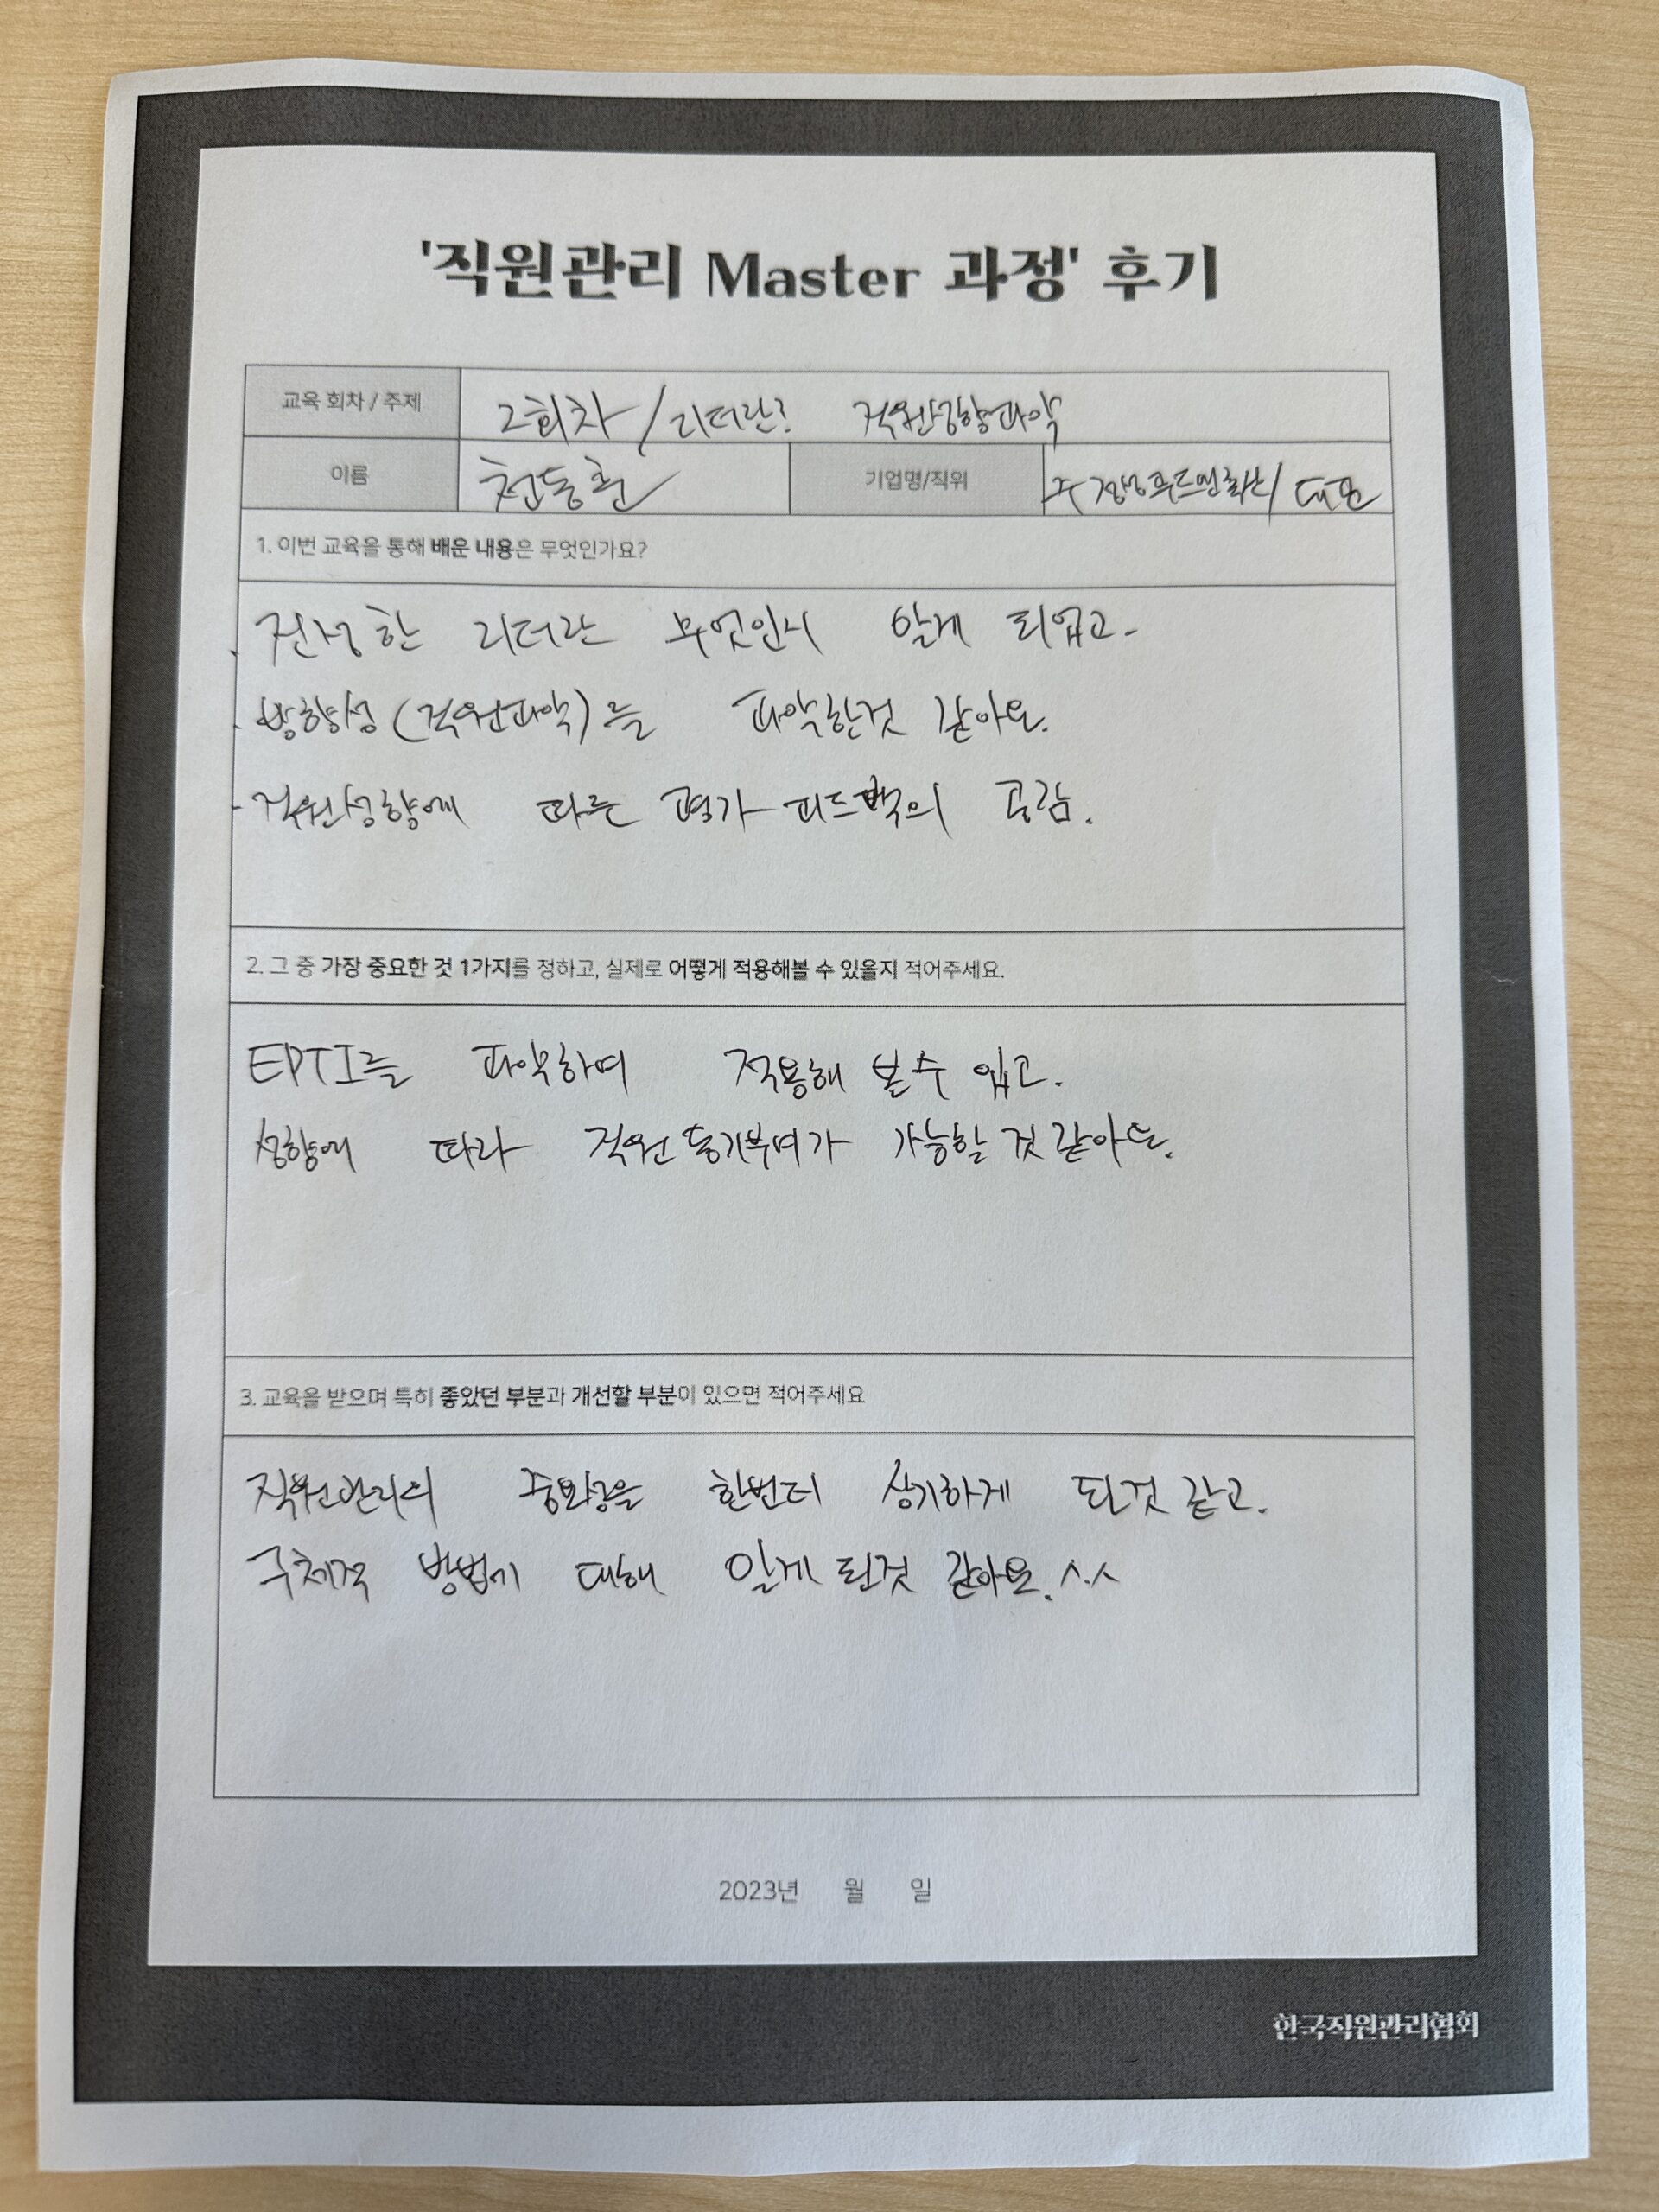 '직원관리 Master 과정' 후기
교육 회차 / 주제 2회차 / 리더란? 직원성향파악
이름 천동훈 기업명/직위 대표
1. 이번 교육을 통해 배운 내용은 무엇인가요?
. 진정한 리더란 무엇인지 알게 되었고.
. 방향성 (직원파악)를 파악한것 같아요.
- 직원성향에 따른 평가 피드백의 공감.
2. 그 중 가장 중요한 것 1가지를 정하고, 실제로 어떻게 적용해볼 수 있을지 적어주세요.
EPTI를 파악하여 적용해 볼수 있고.
성향에 따라 직원 동기부여가 가능할 것 같아요.
3. 교육을 받으며 특히 좋았던 부분과 개선할 부분이 있으면 적어주세요
직원관리의 중요성을 한번더 상기하게 된것 같고.
구체적 방법에 대해 알게 된것 같아요. ^.^
2023년 월 일
한국직원관리협회